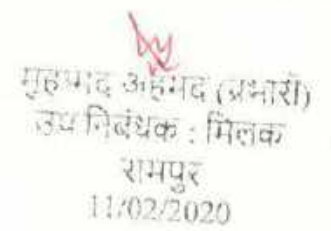 मुहम्मद अहमद (प्रभारी)
उप निबंधक : मिलक
रामपुर
11/02/2020